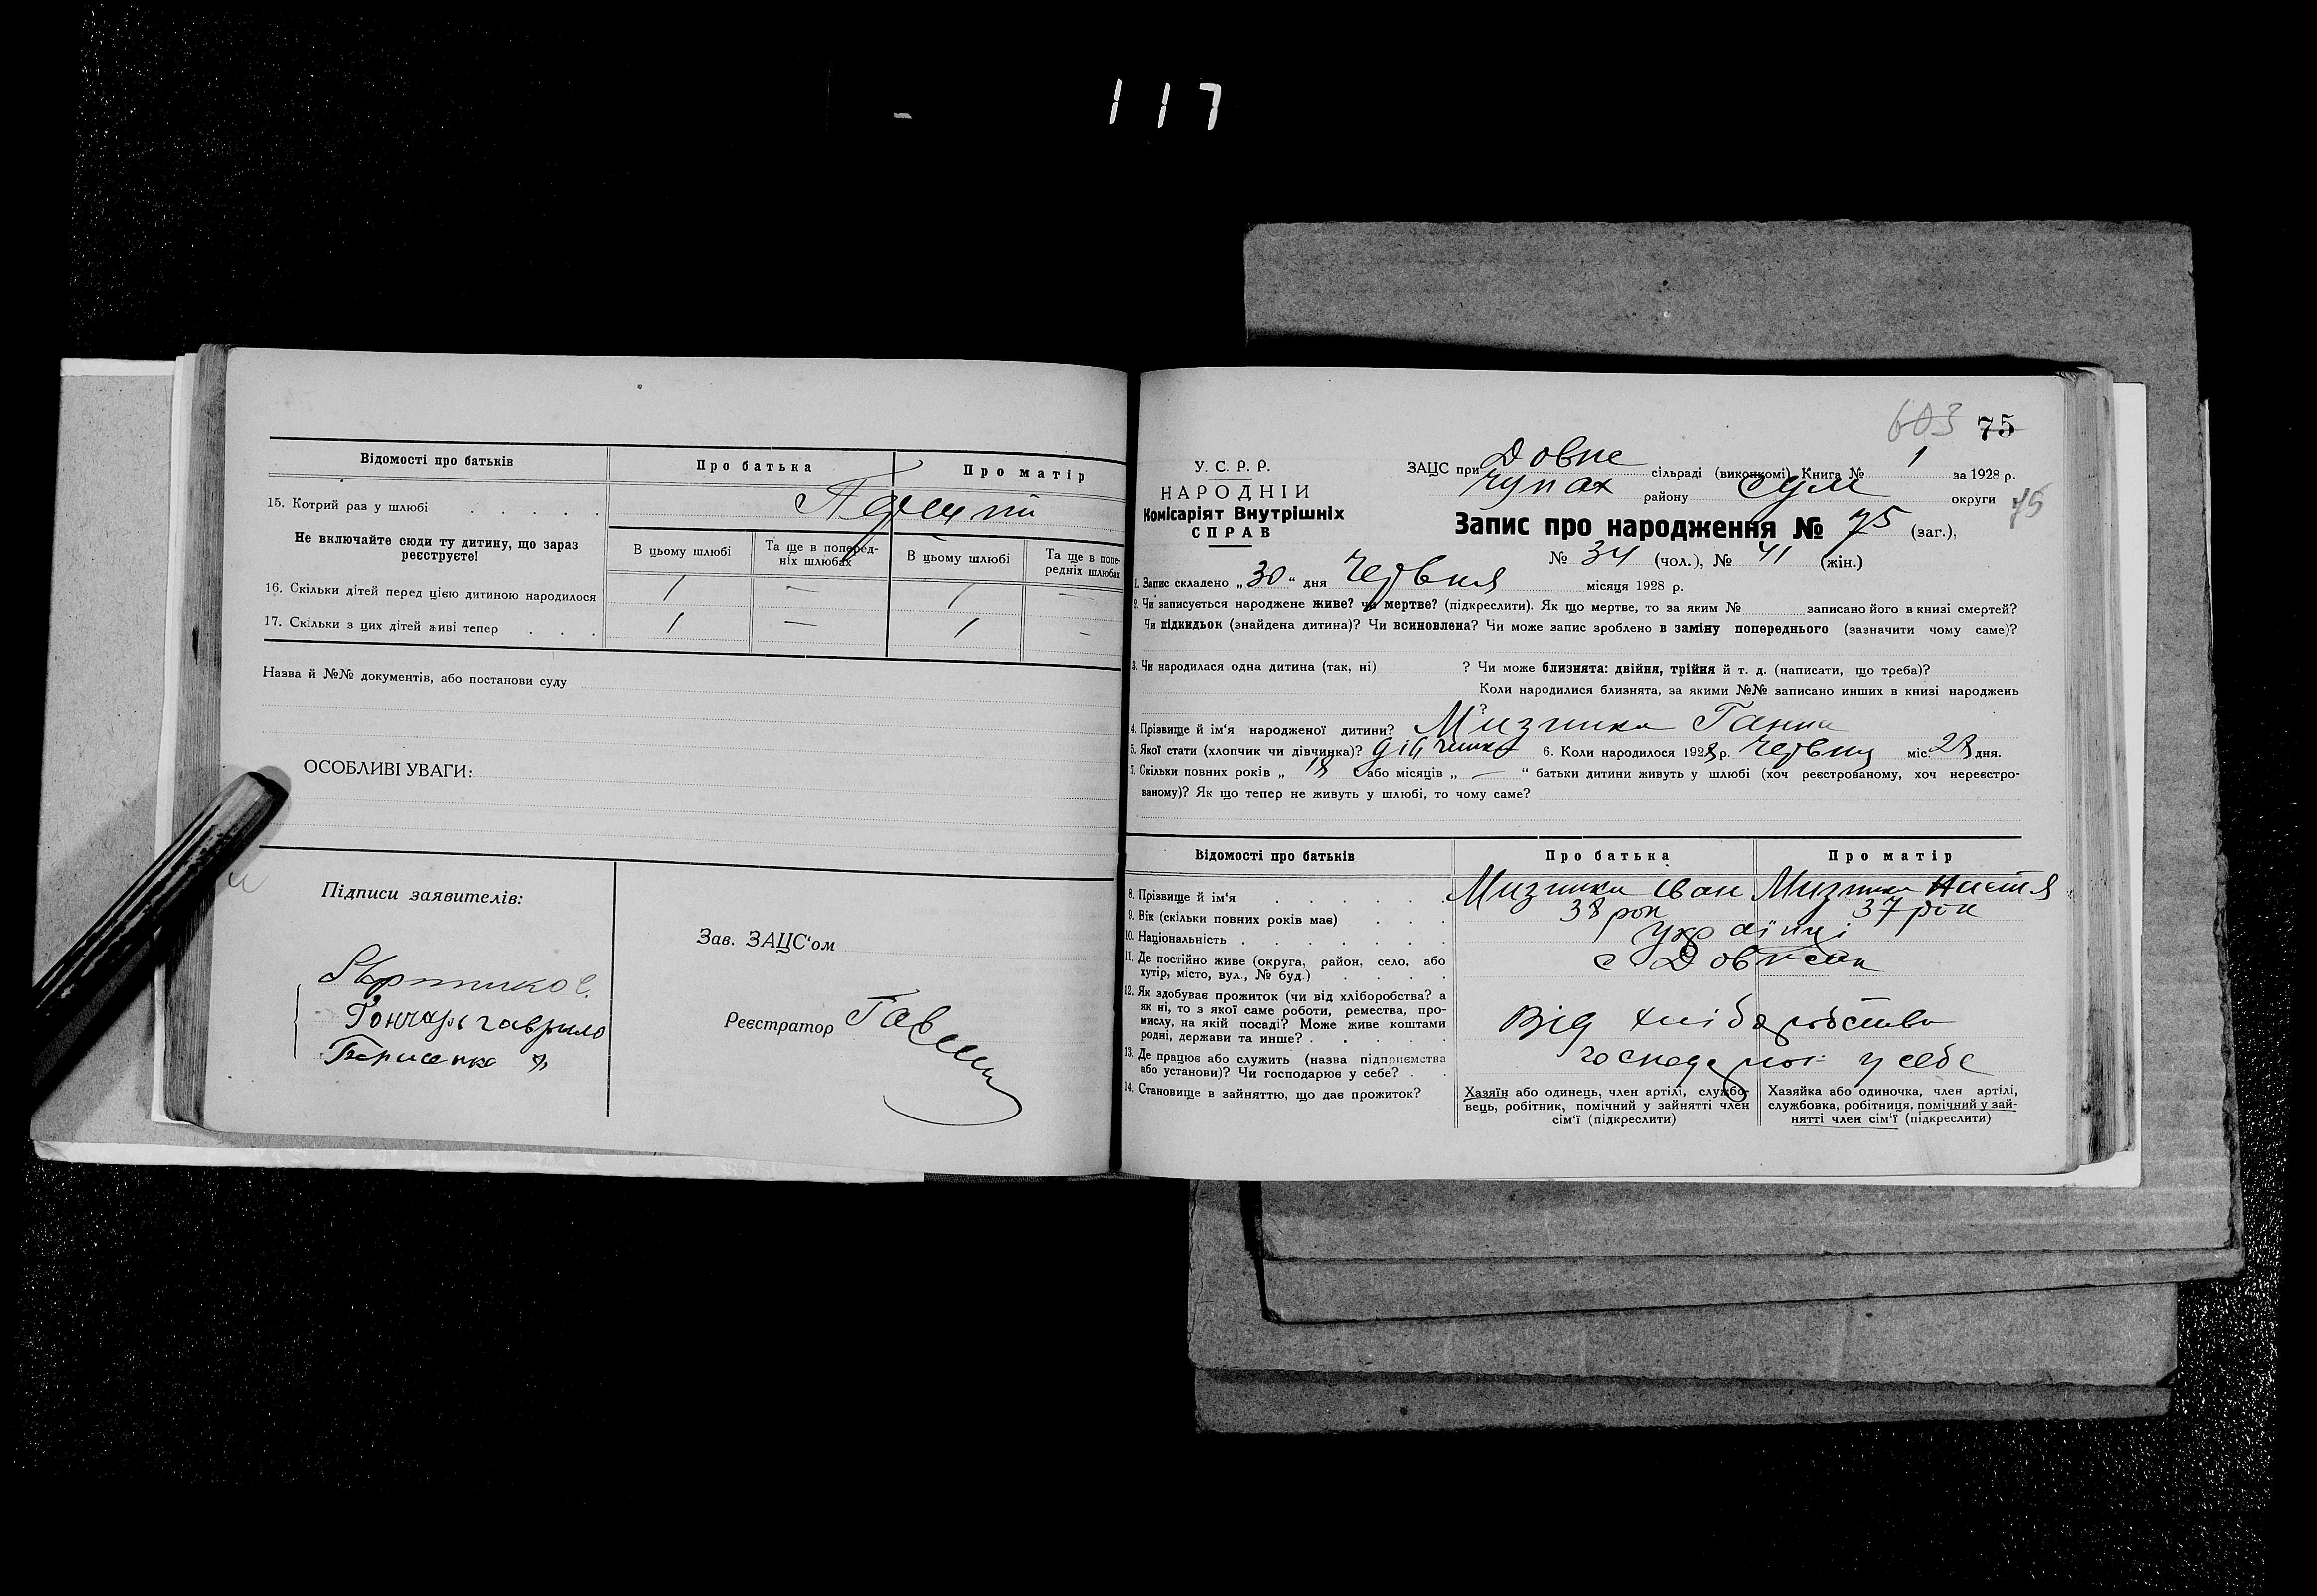 117
Відомості про батьків
Про батька
Про матір
15. Котрий раз у шлюбі
Перший
Не включайте сюди ту дитину, що зараз реєструєте!
В цьому шлюбі
Та ще в поперед-
ніх шлюбах
В цьому шлюбі
Та ще в попе-
редніх шлюбах
16. Скільки дітей перед цією дитиною народилося 1 — 1 —
17. Скільки з цих дітей живі тепер 1 — 1 —
Назва й №№ документів, або постанови суду
ОСОБЛИВІ УВАГИ:
Підписи заявителів:
Гончарь гаврило
Зав. ЗАЦС'ом
Реєстратор
603 75
У. С. Р. Р.
НАРОДНІЙ
Комісаріят Внутрішніх
СПРАВ
ЗАЦС при Довне сільраді (виконкомі) Книга № 1 за 1928 р.
Чупах району Сум округи
75
Запис про народження № 75 (заг.),
№ 34 (чол.), № 41 (жін.)
1. Запис складено „30“ дня Червня місяця 1928 р.
2. Чи записується народжене живе? чи мертве? (підкреслити). Як що мертве, то за яким № записано його в книзі смертей?
Чи підкидьок (знайдена дитина)? Чи всиновлена? Чи може запис зроблено в заміну попереднього (зазначити чому саме)?
3. Чи народилася одна дитина (так, ні) ? Чи може близнята: двійня, трійня й т. д. (написати, що треба)?
Коли народилися близнята, за якими №№ записано инших в книзі народжень
?
4. Прізвище й ім'я народженої дитини? Мизника Ганна
5. Якої стати (хлопчик чи дівчинка)? дівчинка 6. Коли народилося 1928 р. червня міс. 28 дня.
7. Скільки повних років „ 18 або місяців „ — “ батьки дитини живуть у шлюбі (хоч реєстрованому, хоч нереєстро-
ваному)? Як що тепер не живуть у шлюбі, то чому саме?
Відомості про батьків
Про батька
Про матір
8. Прізвище й ім'я Мизника Іван Мизника Настя
9. Вік (скільки повних років має) 38 рок 37 рок
10. Національність українці
11. Де постійно живе (округа, район, село, або
хутір, місто, вул., № буд.)
12. Як здобуває прожиток (чи від хліборобства? а
як ні, то з якої саме роботи, ремества, про-
мислу, на якій посаді? Може живе коштами
родні, держави та инше?
Від хліборобства
13. Де працює або служить (назва підприємства
або установи)? Чи господарює у себе?
господарює у себе
14. Становище в зайняттю, що дає прожиток?
Хазяїн або одинець, член артілі, службо-
вець, робітник, помічний у зайнятті член
сім'ї (підкреслити)
Хазяйка або одиночка, член артілі,
службовка, робітниця, помічний у зай-
нятті член сім'ї (підкреслити)